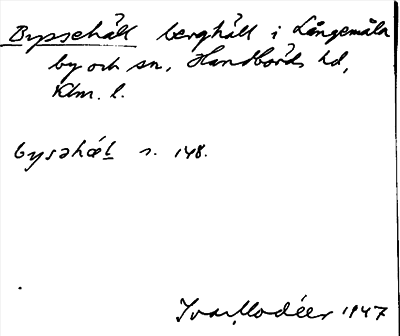 Bysschäll berghäll i Långemåla
by och sn, Handbörds hd,
Klm. l.
bysəhæl s. 148.
Ivar Modéer 1947